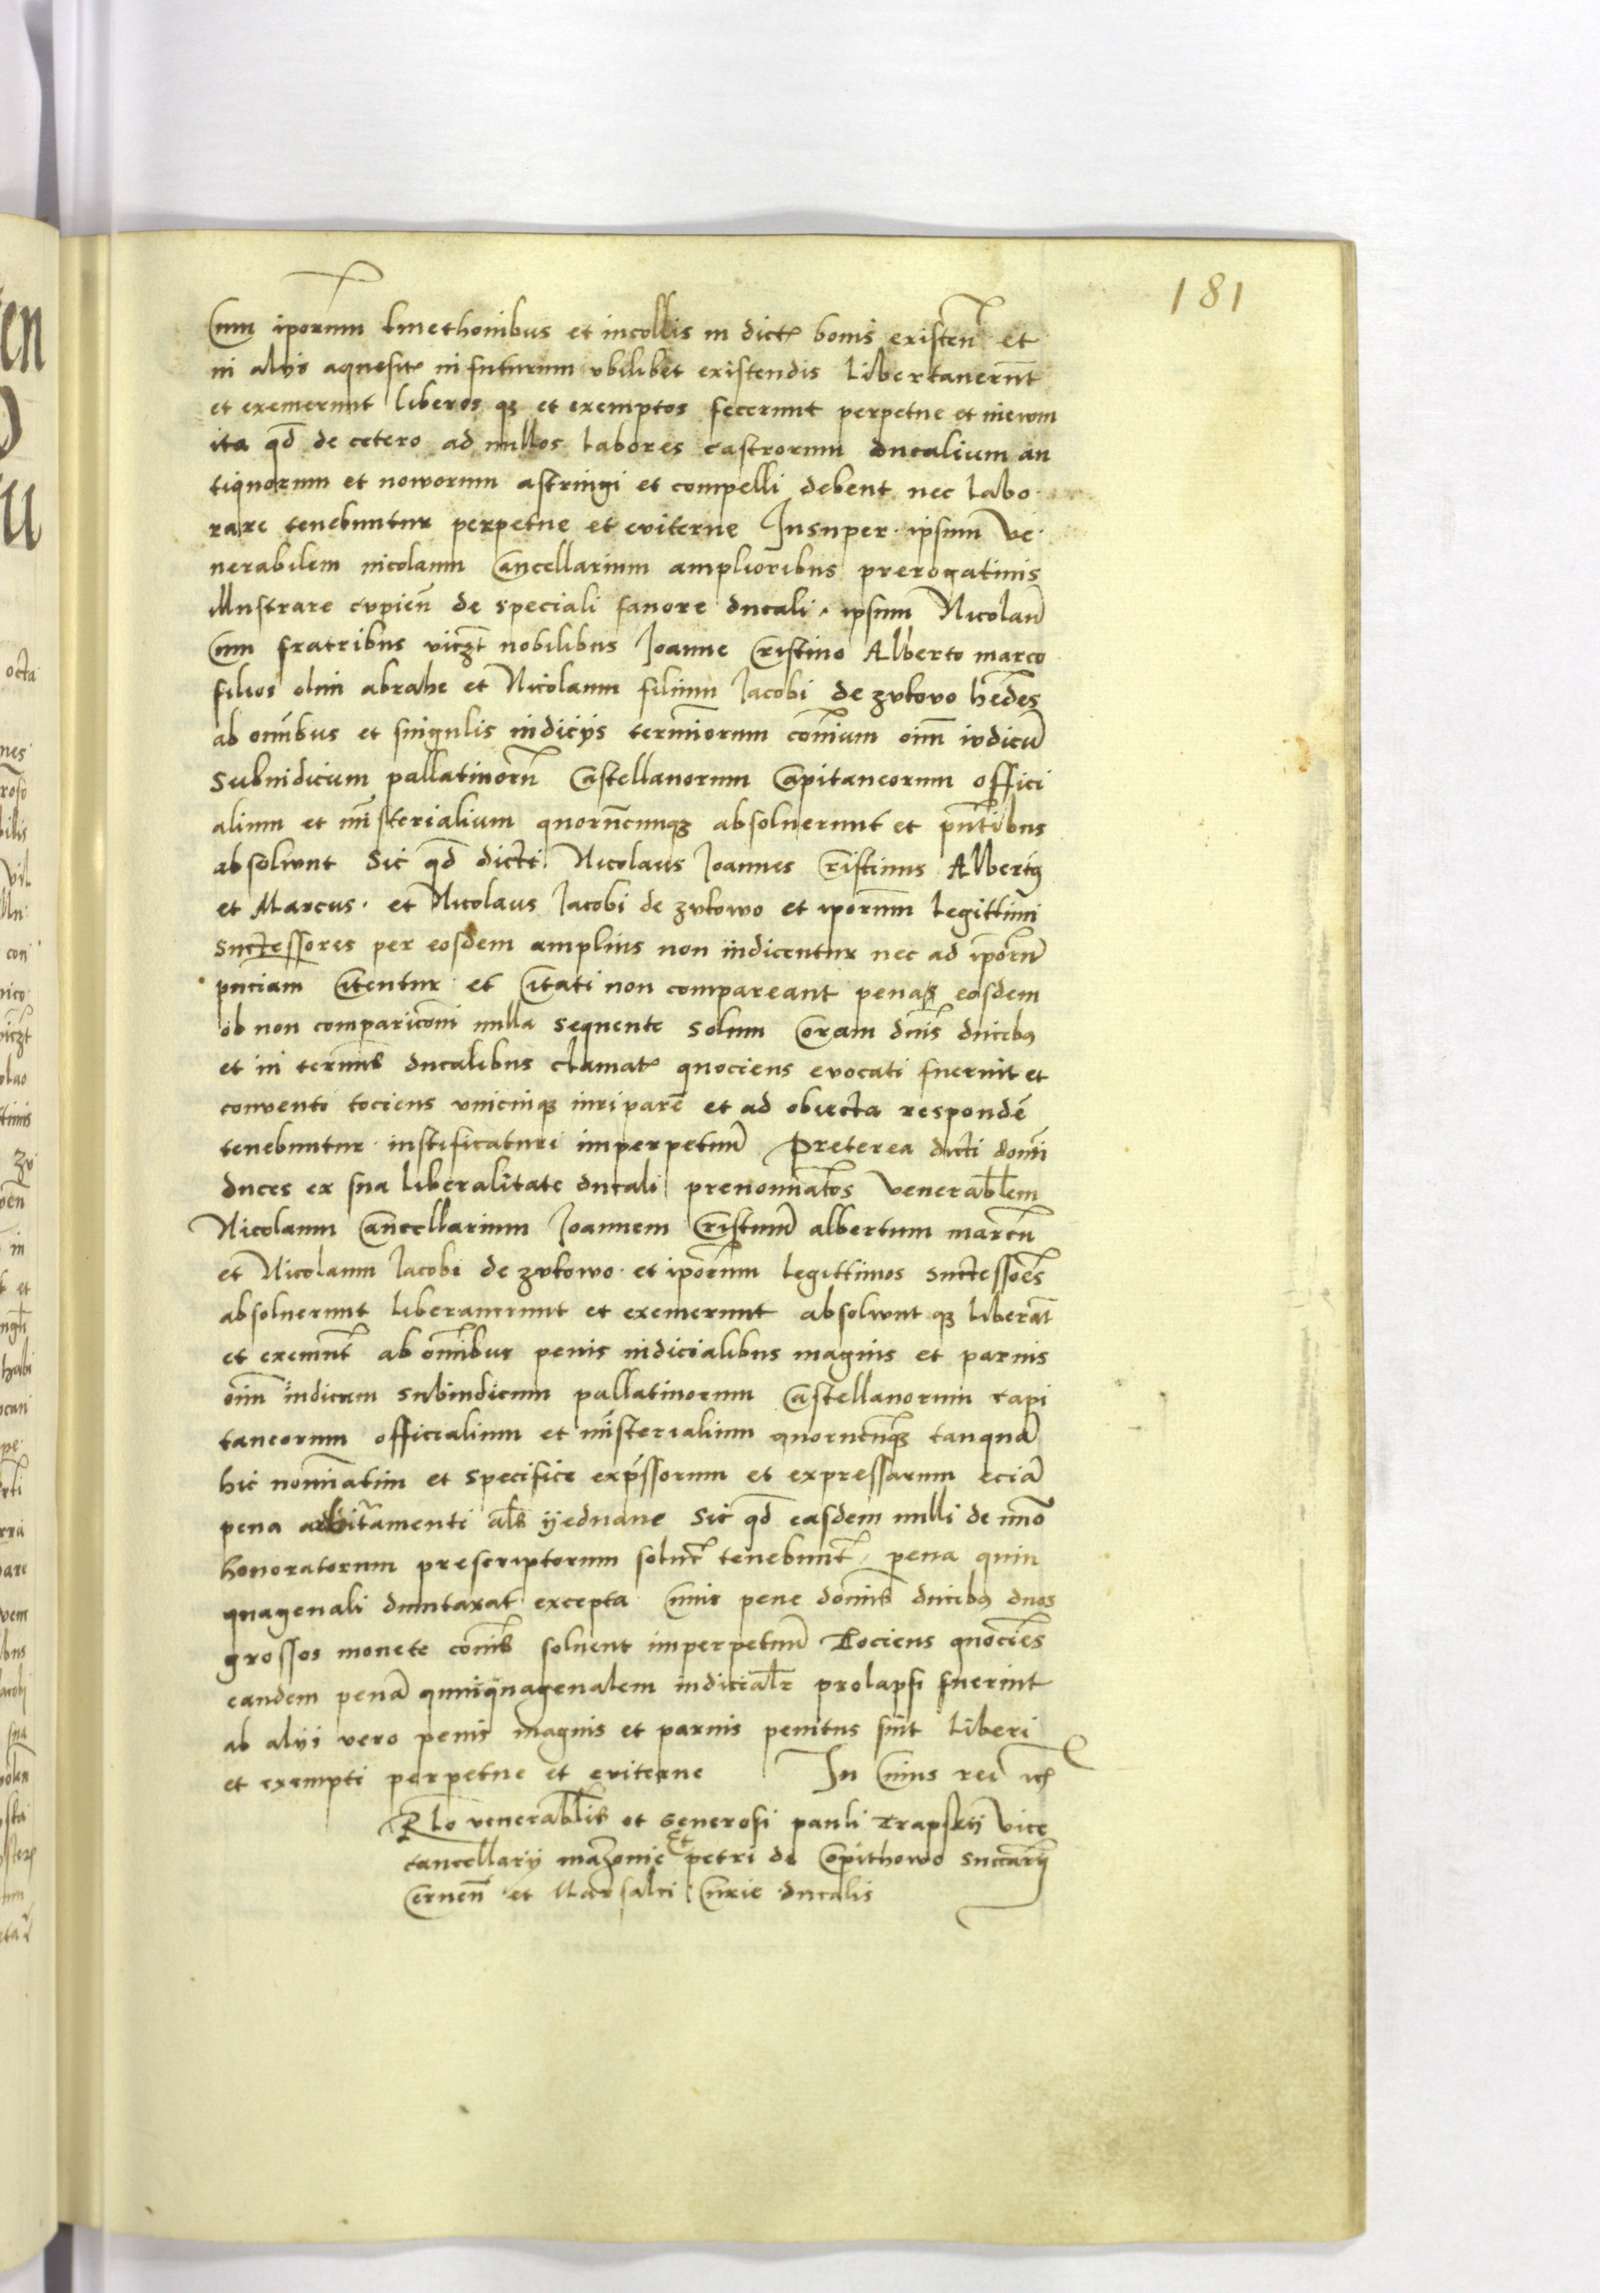 181
Cum ipsorum kmethonibus et incollis in dictis bonis existen et
in alys aquesitis in futurum ubilibet existendis Libertauerunt
et exemerunt Liberos qz et exemptos fecerunt perpetue et in ewm
ita qd de cetero ad nullos Labores castrorum ducalium an
tiquorum et noworum astringi et compelli debent nec Labo
rare tenebuntur perpetue et eviterne Insuper ipsum Ve
nerabilem nicolaum Cancellarium amplioribus prerogatiuis
illustrare cupien de speciali fauore ducali ipsum Nicolau
Cum fratribus viczt nobilibus Joanne Cristino Alberto marco
filios olim abrahe et Nicolaum filium Jacobi de zukowo heredes
ab omnibus et singulis iudicijs terminorum comium oim iudicu
Subiudicum pallatinoru Castellanorum Capitaneorum offici
alium et ministerialium quoruncunqz absoluerunt et pntibus
absolwnt Sic qd dicti Nicolaus Joannes Cristinus Albertus
et Marcus et Nicolaus Jacobi de zukowo et iporum Legittimi
Successores per eosdem amplius non iudicentur nec ad iporum
pnciam Citentur et Citati non compareant penas easdem
ob non comparicom nulla sequente Solum Coram dnis ducibus
et in terminis ducalibus clamatis quociens evocati fuerint et
conventi tociens unicuiqz iuri parere et ad obiecta respondere
tenebuntur iustificaturi imperpetuum Preterea dicti domini
duces ex sua Liberalitate ducali prenominatos Venerabilem
Nicolaum Cancellarium Joannem Cristinum albertum marcum
et Nicolaum Jacobi de zukowo et iporum Legittimos Successores
absoluerunt Liberauerunt et exemerunt absolwnt qz Liberant
et eximunt ab omnibus penis iudicialibus magnis et paruis
oim iudicum Subiudicum pallatinorum Castellanorum capi
taneorum officialium et ministerialium quoruncunqz tanquam
hic nominatim et specifice expressorum et expressarum eciam
pena aditamenti als yednane Sic qd easdem nulli de numero
honoratorum prescriptorum soluere tenebuntur pena quin
quagenali duntaxat excepta Cuius pene dominis ducibus duos
grossos monete comis soluent imperpetuum Tociens quociens
eandem penam quinquagenalem iudicialr prolapsi fuerint
ab alijs vero penis magnis et paruis penitus sint Liberi
et exempti perpetue et eviterne In Cuius rei
Rlo venerabilis et generosi pauli Trapsky Vice
cancellarij mazouie Et petri de Copithowo Succamerarij
Cernen et Marsalci Curie ducalis